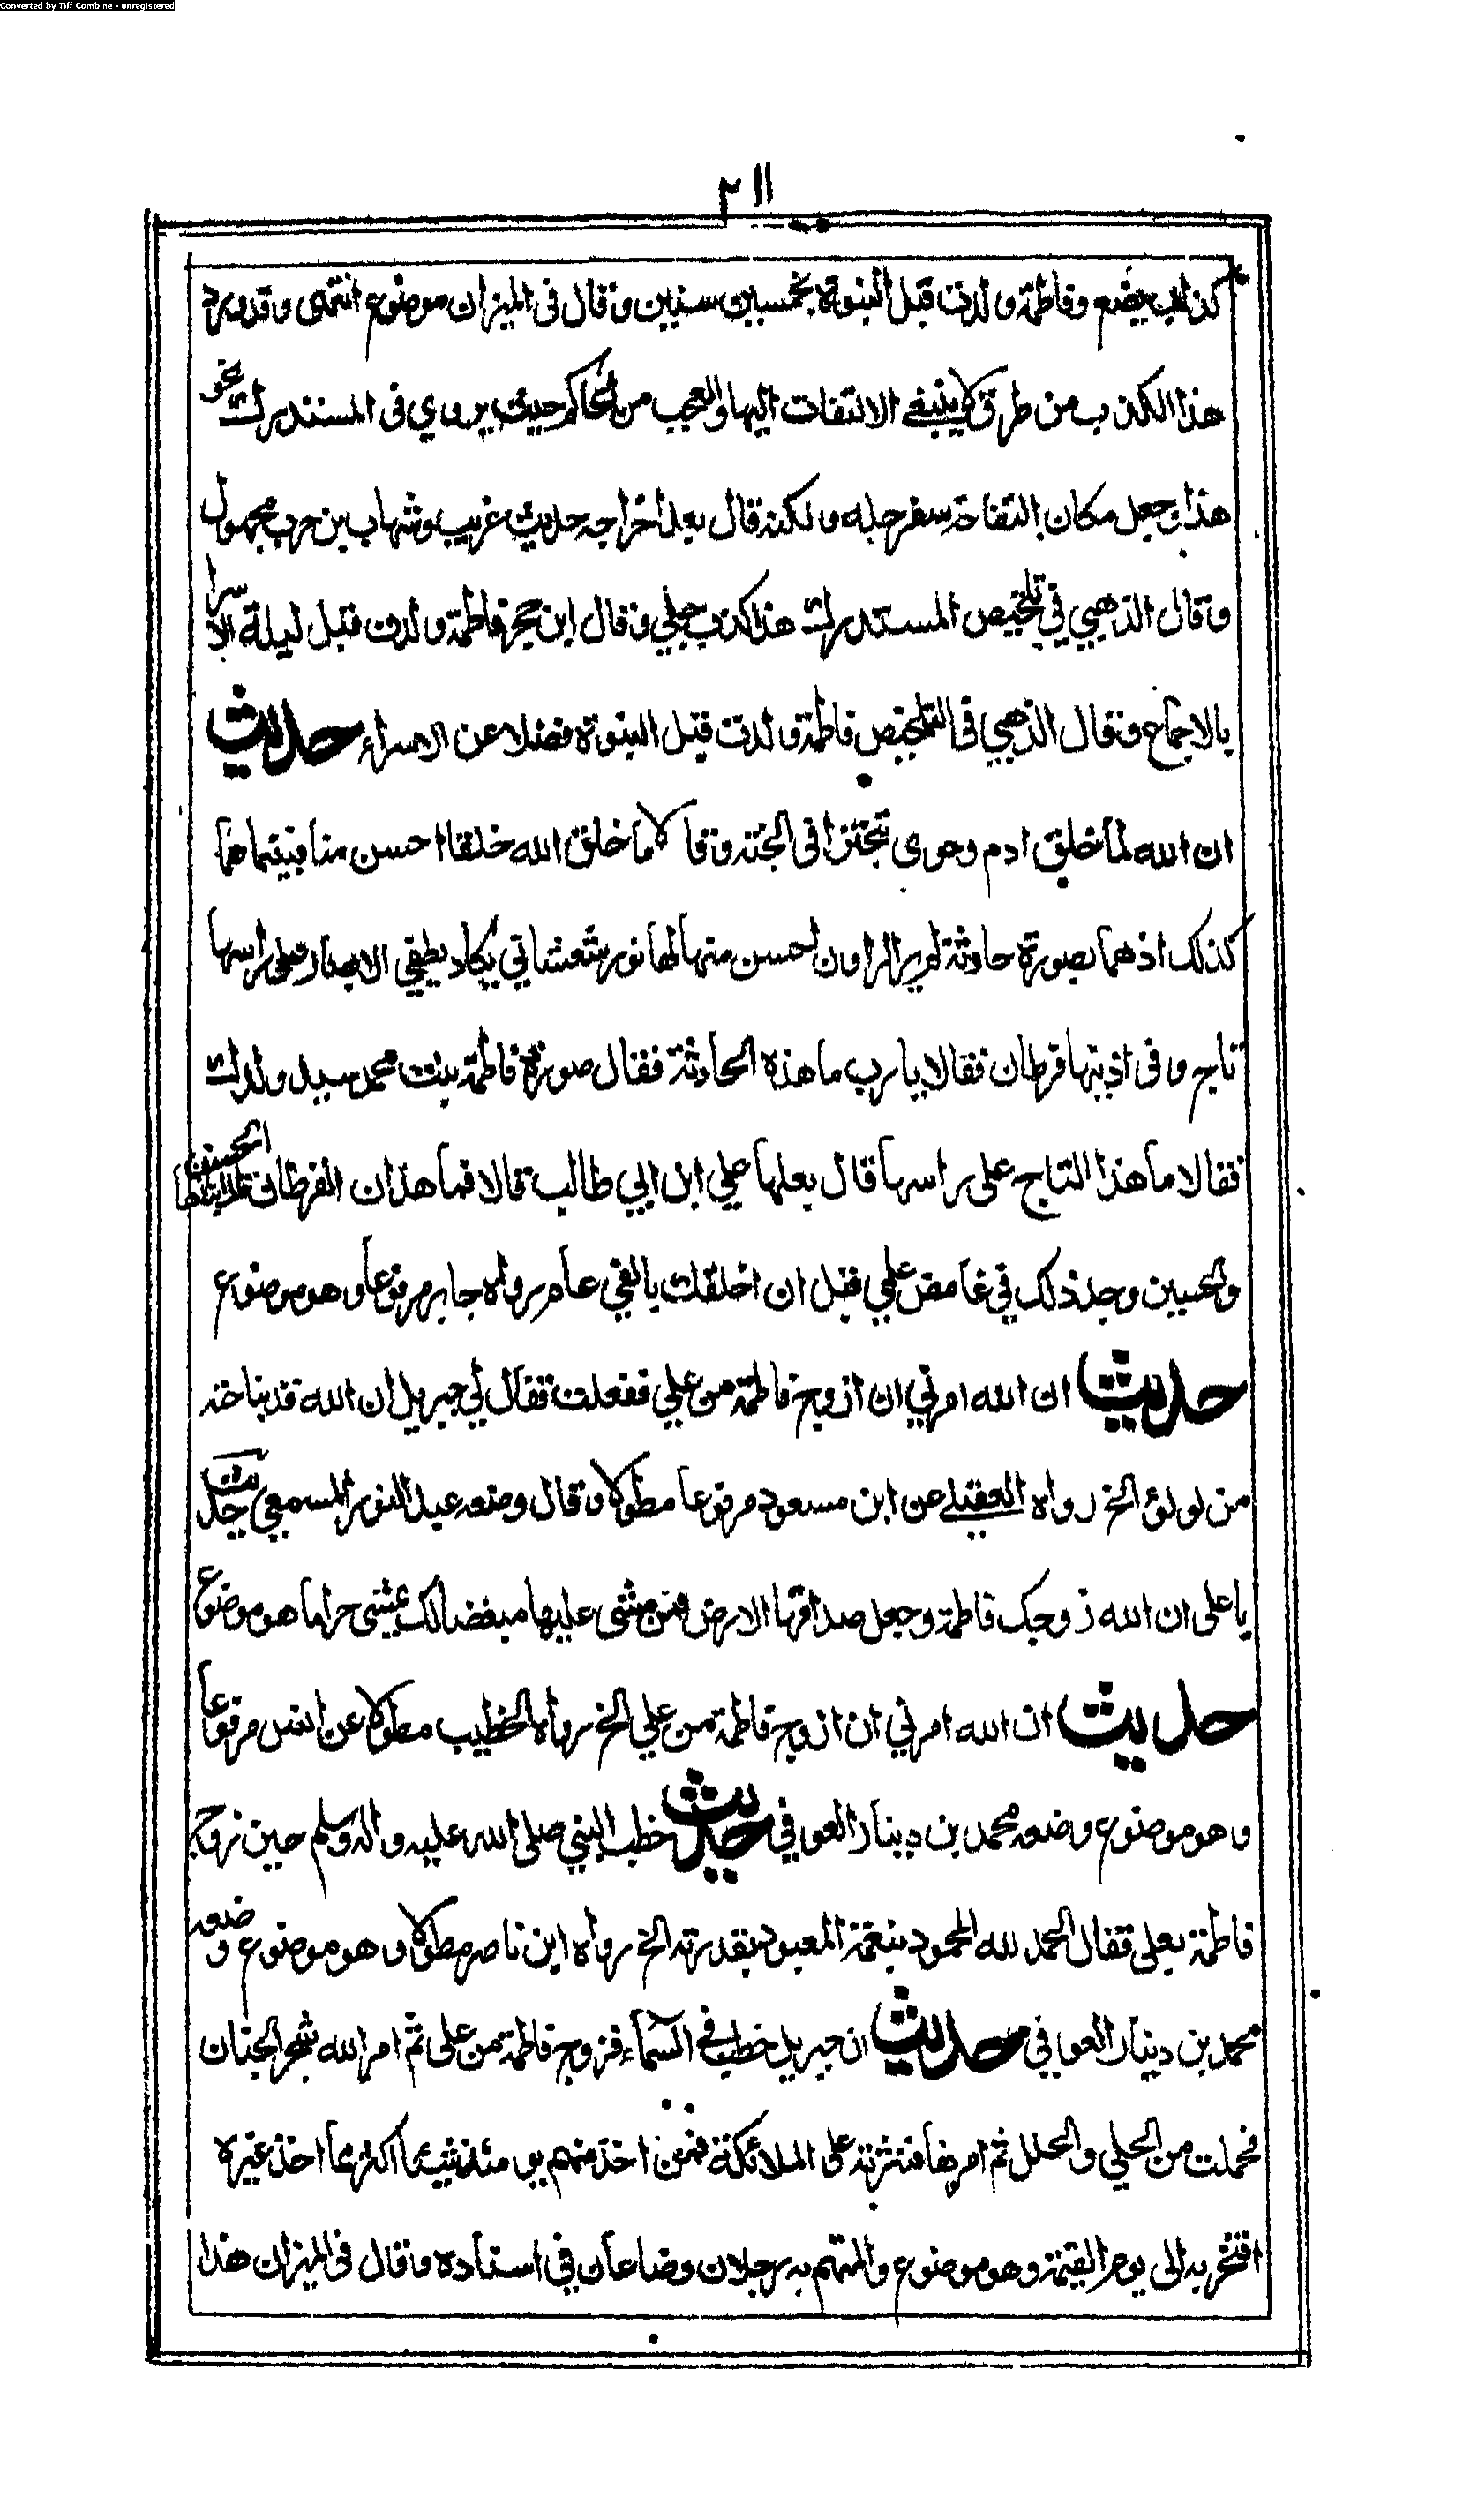 Converted by Tiff Combine - unregistered
٢١١
كذاب يضع وفاطمة ولدت قبل النبوة بخمس سنين وقال فى الميزان موضوع انتهى وقد روى
هذا الكذب من طرق لا ينبغي الالتفات اليها والعجب من الحاكم حيث يروي فى المستدرك نحو
هذا وجعل مكان التفاحة سفرجله ولكنه قال بعد اخراجه حديث غريب وشهاب بن حرب مجهول
وقال الذهبي في تلخيص المستدرك هذا كذب جلي وقال ابن حجر فاطمة ولدت قبل ليلة الاسرا
بالاجماع وقال الذهبي فى التلخيص فاطمة ولدت قبل النبوة فضلا عن الاسراء حديث
ان الله لما خلق ادم وحوى تبخترا فى الجنة وقالا ما خلق الله خلقا احسن منا فبينما هما
كذلك اذ هما بصورة حادثة لم ير الراون احسن منها لها نور شعشاني يكاد يطفي الابصار على راسها
تاج وفى اذنيها قرطان فقالا يا رب ما هذه الحادثة فقال صورة فاطمة بنت محمد سيد ولدك
فقالا ما هذا التاج على راسها قال بعلها علي ابن ابي طالب قالا فما هذان القرطان قال ابناها الحسن
والحسين وجد ذلك في غامض علمي قبل ان اخلقك بالفي عام رواه جابر مرفوعا وهو موضوع
حديث ان الله امرني ان ازوج فاطمة من علي ففعلت فقال لي جبريل ان الله قد بنا جنة
من لولؤ الخ رواه العقيلے عن ابن مسعود مرفوعا مطولا وقال وضعه عبد النور المسمعي حديث
يا على ان الله زوجك فاطمة وجعل صداقها الارض فمن مشى عليها مبغضا لك مشى حراما هو موضوع
حديث ان الله امرني ان ازوج فاطمة من علي الخ رواه الخطيب مطولا عن انس مرفوعا
وهو موضوع وضعه محمد بن دينار العوفي حديث خطب النبي صلى الله عليه واله وسلم حين زوج
فاطمة بعلى فقال الحمد لله المحمود بنعمة المعبود بقدرته الخ رواه ابن ناصر مطولا وهو موضوع وضعه
محمد بن دينار العوافي حديث ان جبريل خطب في السماء فزوج فاطمة من على ثم امر الله شجر الجنان
فحملت من الحلي والحلل ثم امرها فنثرته على الملائكة فمن اخذ منهم يومئذ شيئا اكثر مما اخذ غيره
افتخر به الى يوم القيمة وهو موضوع والمتهم به رجلان وضاعان في اسناده وقال فى الميزان هذا